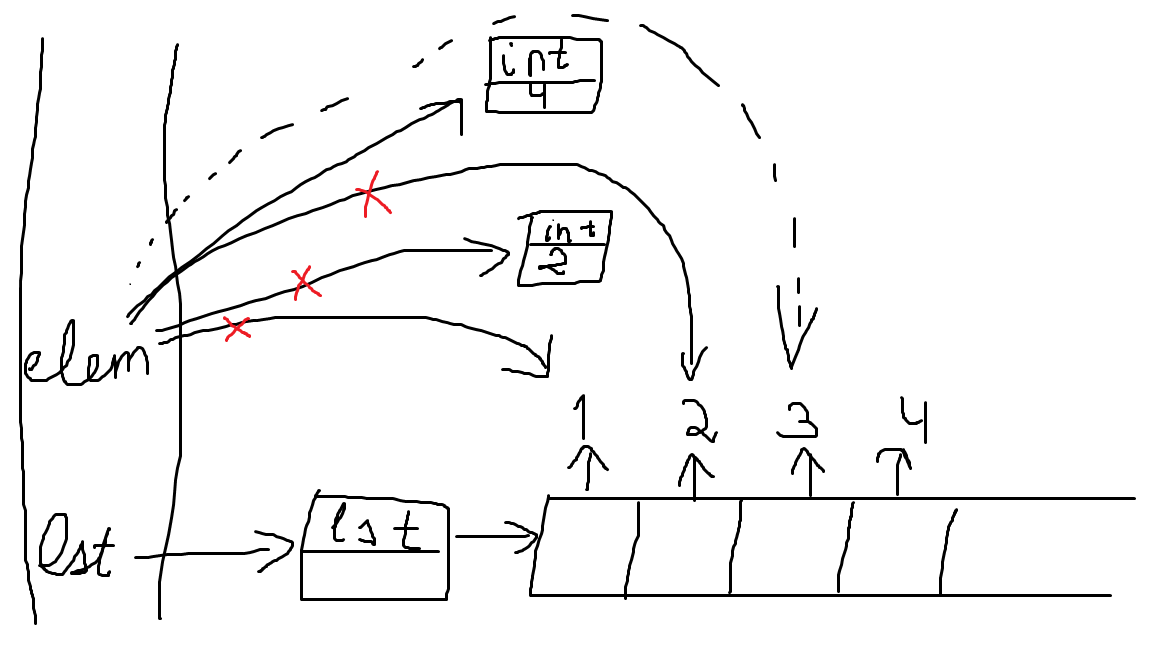 int
4
int
2
elem
1 2 3 4
lst
lst